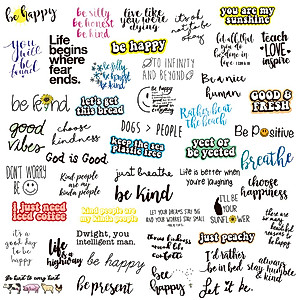 be happy
be silly
be honest
be kind
live like
you were
dying
it's ok
not to be
okay
you are my
sunshine
let all that
you do
be done
in love
teach
LOVE
inspire
you
are
free
Life
begins
where
fear
ends.
be happy
be silly
be honest
be kind
TO INFINITY
AND BEYOND
be a nice
human
be kind
let's get
this bread
Rather be at
the beach
GOOD &
FRESH
good
vibes
choose
kindness
DOGS > PEOPLE
Be Positive
God is Good
keep the sea
plastic free
yeet or
be yeeted
breathe
DON'T WORRY
BE
Kind people
are my
kinda people
just breathe
be kind
Life is better when
you're laughing.
choose
happiness
I just need
iced coffee
kind people are
my kinda people
LET YOUR DREAMS STAY BIG
AND YOUR WORRIES STAY SMALL
I'LL BE
YOUR
SUNFLOWER
it's a
good day
to be
happy
life is a
highway
Dwight, you
intelligent
man.
throw kindness
around like
confetti
just peachy
be happy
be present
be happy
I'd rather
be in bed
always
stay humble
& kind
Let it be.
Be kind to every kind